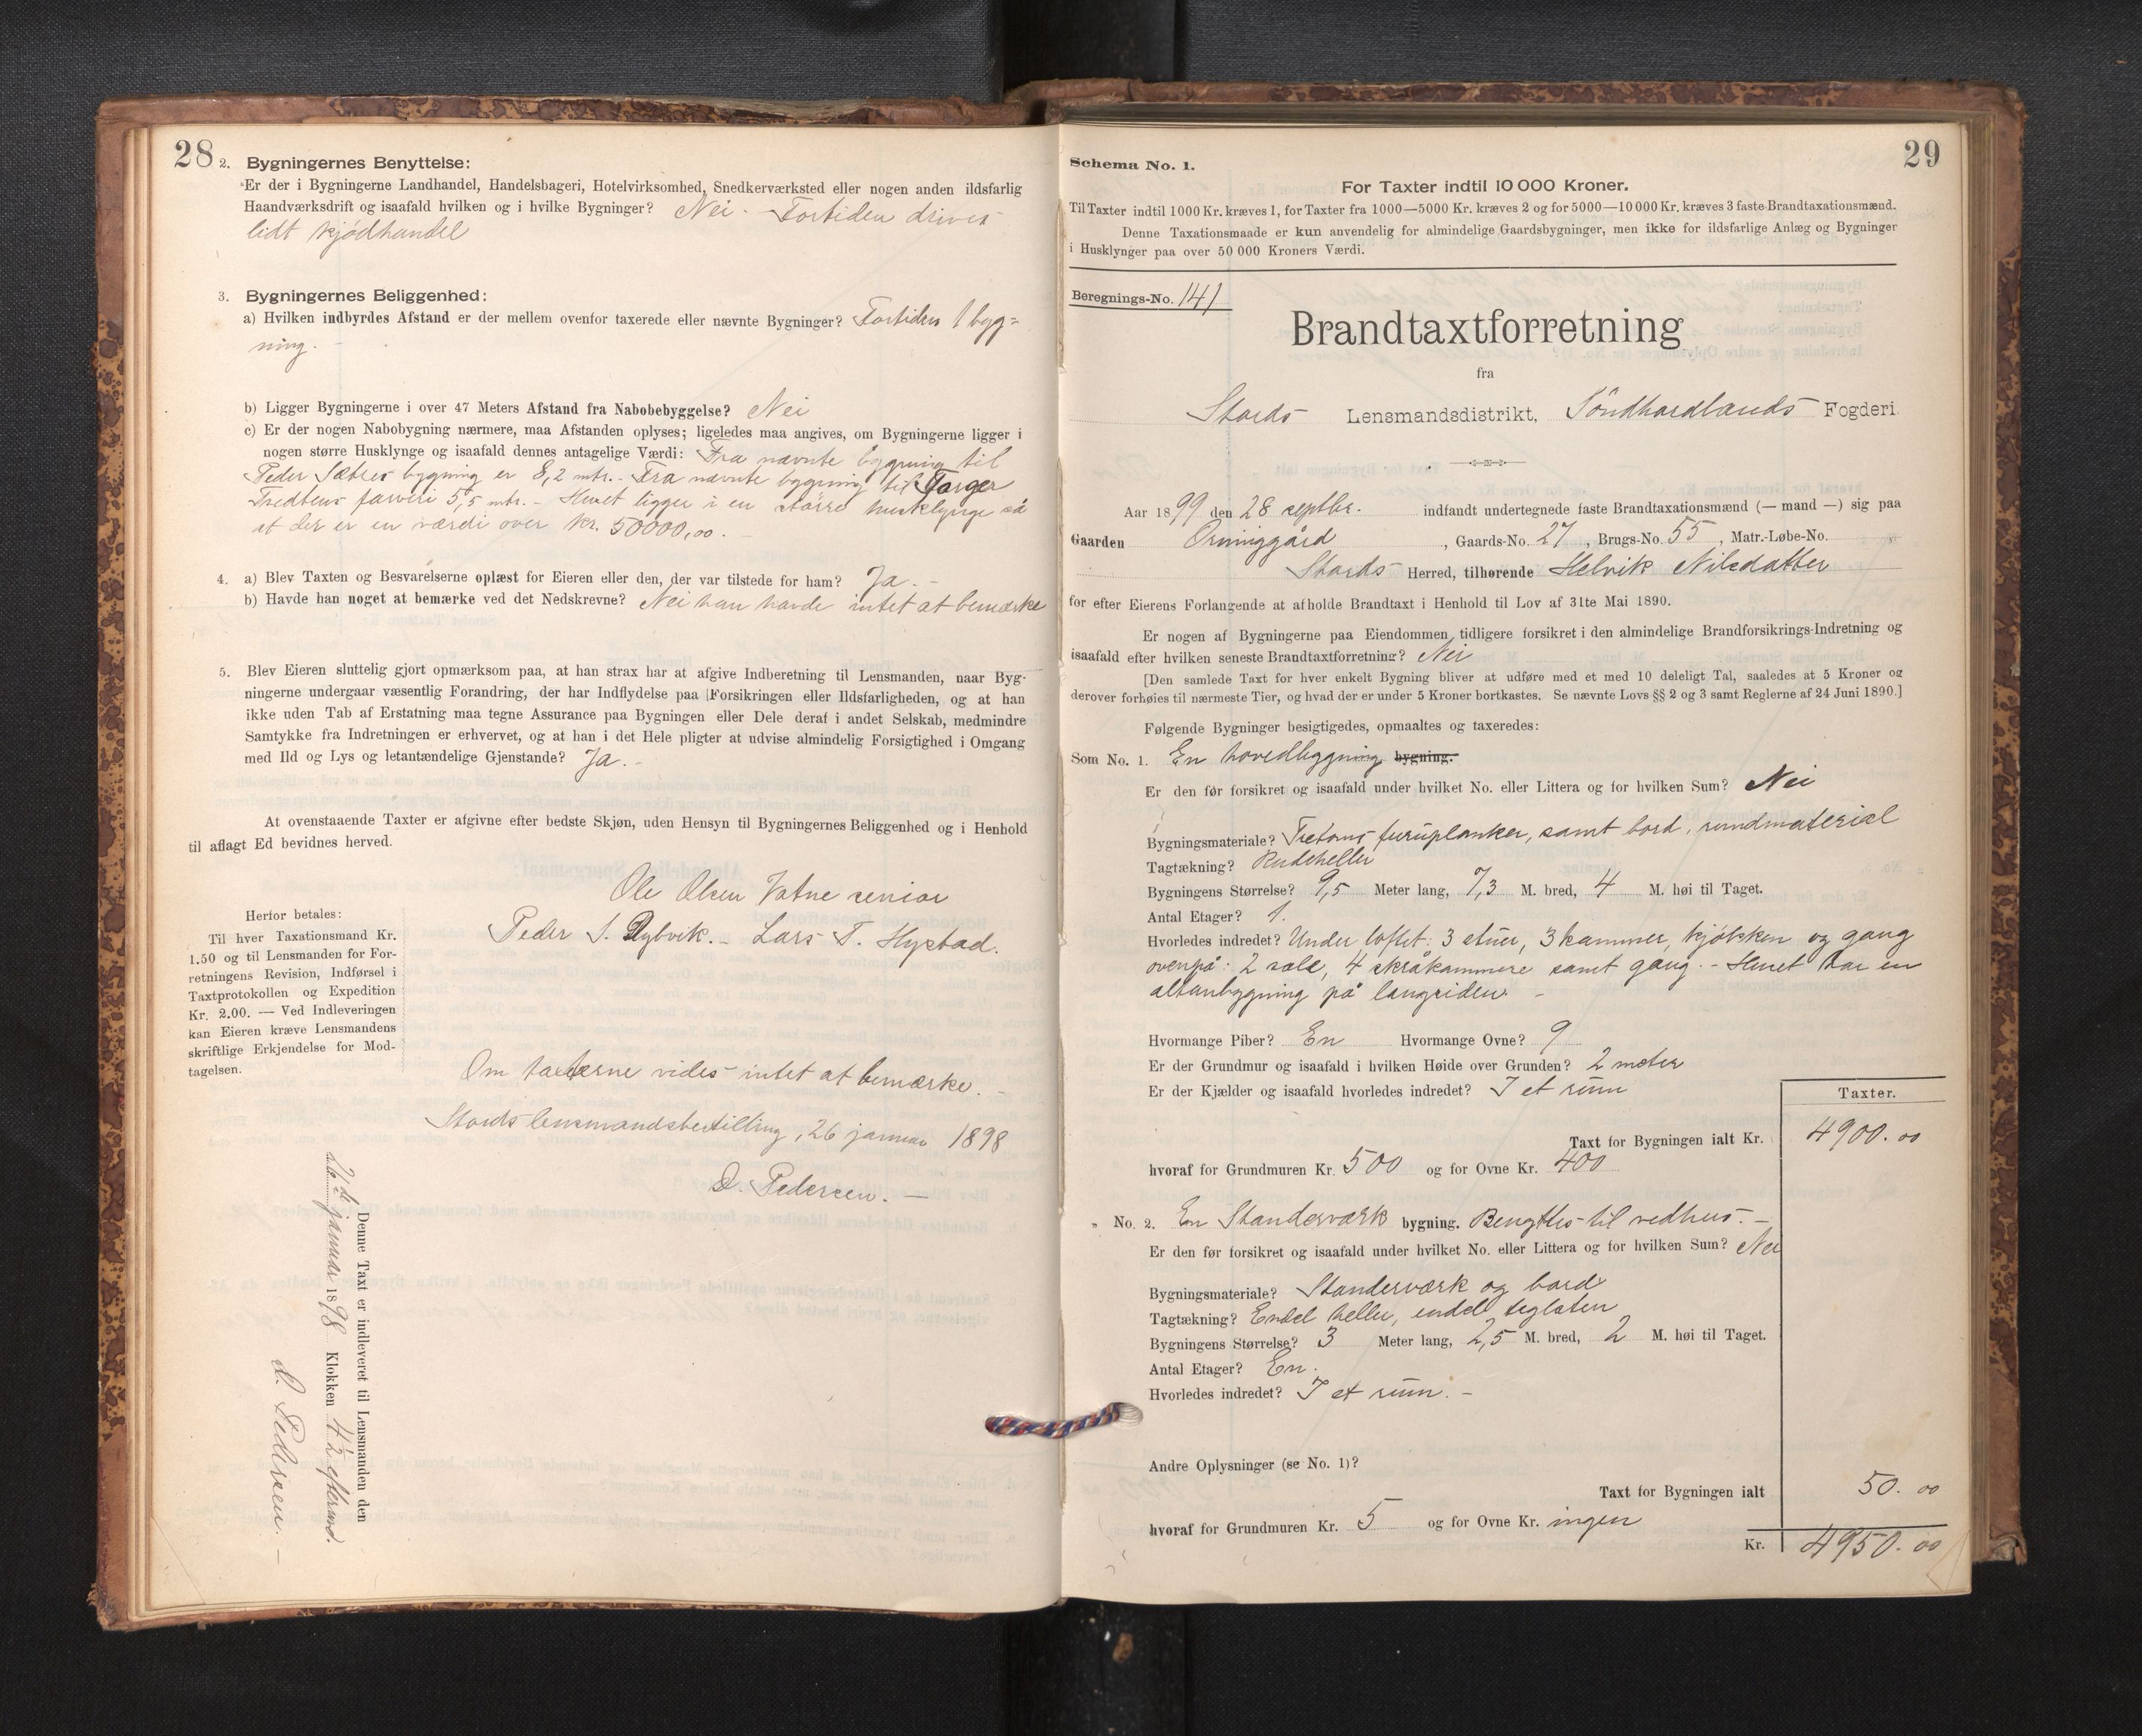 28
2. Bygningernes Benyttelse:
Er der i Bygningerne Landhandel, Handelsbageri, Hotelvirksomhed, Snedkerværksted eller nogen anden ildsfarlig
Haandværksdrift og isaafald hvilken og i hvilke Bygninger? Nei. - Fortiden drives
lidt kjødhandel
3. Bygningernes Beliggenhed:
a) Hvilken indbyrdes Afstand er der mellem ovenfor taxerede eller nævnte Bygninger? Fortiden 1 byg=
ning.
b) Ligger Bygningerne i over 47 Meters Afstand fra Nabobebyggelse? Nei
c) Er der nogen Nabobygning nærmere, maa Afstanden oplyses; ligeledes maa angives, om Bygningerne ligger i
nogen større Husklynge og isaafald dennes antagelige Værdi: Fra nævnte bygning til
Peder Sætres bygning er 8,2 mtr. - Fra nævnte bygning til Torger
Tredtens farveri 5,5 mtr. - Huset ligger i en större husklynge så
at der er en værdi over kr. 50000,00. -
4. a) Blev Taxten og Besvarelserne oplæst for Eieren eller den, der var tilstede for ham? Ja. -
b) Havde han noget at bemærke ved det Nedskrevne? Nei han havde intet at bemærke
5. Blev Eieren sluttelig gjort opmærksom paa, at han strax har at afgive Indberetning til Lensmanden, naar Byg-
ningerne undergaar væsentlig Forandring, der har Indflydelse paa Forsikringen eller Ildsfarligheden, og at han
ikke uden Tab af Erstatning maa tegne Assurance paa Bygningen eller Dele deraf i andet Selskab, medmindre
Samtykke fra Indretningen er erhvervet, og at han i det Hele pligter at udvise almindelig Forsigtighed i Omgang
med Ild og Lys og letantændelige Gjenstande? Ja. -
At ovenstaaende Taxter er afgivne efter bedste Skjøn, uden Hensyn til Bygningernes Beliggenhed og i Henhold
til aflagt Ed bevidnes herved.
Ole Olsen Vatne senior
Peder S. Dybvik. - Lars T. Hystad.
Herfor betales:
Til hver Taxationsmand Kr.
1.50 og til Lensmanden for For-
retningens Revision, Indførsel i
Taxtprotokollen og Expedition
Kr. 2.00. — Ved Indleveringen
kan Eieren kræve Lensmandens
skriftlige Erkjendelse for Mod-
tagelsen.
Om taxterne vides intet at bemærke. -
Stords lensmandsbestilling, 26 januar 1898
D. Pedersen. -
Denne Taxt er indleveret til Lensmanden den
26de januar 1898 Klokken 4½ efterm.
D. Pedersen. -
29
Schema No. 1.
For Taxter indtil 10 000 Kroner.
Til Taxter indtil 1000 Kr. kræves 1, for Taxter fra 1000—5000 Kr. kræves 2 og for 5000—10 000 Kr. kræves 3 faste Brandtaxationsmænd.
Denne Taxationsmaade er kun anvendelig for almindelige Gaardsbygninger, men ikke for ildsfarlige Anlæg og Bygninger
i Husklynger paa over 50 000 Kroners Værdi.
Beregnings-No. 141
Brandtaxtforretning
fra
Stords Lensmandsdistrikt, Söndhordlands Fogderi
Aar 1899 den 28 septbr. indfandt undertegnede faste Brandtaxationsmænd (— mand —) sig paa
Gaarden Orninggård, Gaards-No. 27, Brugs-No. 55, Matr.-Løbe-No.
Stords Herred, tilhørende Helvik Nilsdatter
for efter Eierens Forlangende at afholde Brandtaxt i Henhold til Lov af 31te Mai 1890.
Er nogen af Bygningerne paa Eiendommen tidligere forsikret i den almindelige Brandforsikrings-Indretning og
isaafald efter hvilken seneste Brandtaxtforretning? Nei
[Den samlede Taxt for hver enkelt Bygning bliver at udføre med et med 10 deleligt Tal, saaledes at 5 Kroner og
derover forhøies til nærmeste Tier, og hvad der er under 5 Kroner bortkastes. Se nævnte Lovs §§ 2 og 3 samt Reglerne af 24 Juni 1890.]
Følgende Bygninger besigtigedes, opmaaltes og taxeredes:
Som No. 1. En hovedbygning bygning.
Er den før forsikret og isaafald under hvilket No. eller Littera og for hvilken Sum? Nei
Bygningsmateriale? Tretoms furuplanker, samt bord, rundmaterial
Tagtækning? Rudeheller
Bygningens Størrelse? 9,5 Meter lang, 7,3 M. bred, 4 M. høi til Taget.
Antal Etager? 1.
Hvorledes indredet? Under loftet: 3 stuer, 3 kammer, kjøkken og gang
ovenpå: 2 sale, 4 skråkammere samt gang. - Huset har en
altanbygning på langsiden. -
Hvormange Piber? En Hvormange Ovne? 9
Er der Grundmur og isaafald i hvilken Høide over Grunden? 2 meter
Er der Kjælder og isaafald hvorledes indredet? I et rum
Taxter.
Taxt for Bygningen ialt Kr. 4900.00
hvoraf for Grundmuren Kr. 500 og for Ovne Kr. 400
„ No. 2. En Standerværk bygning. Bengttes til vedhus. -
Er den før forsikret og isaafald under hvilket No. eller Littera og for hvilken Sum? Nei
Bygningsmateriale? Standerværk og bord
Tagtækning? Endel heller, endel teglsten
Bygningens Størrelse? 3 Meter lang, 2,5 M. bred, 2 M. høi til Taget.
Antal Etager? En.
Hvorledes indredet? I et rum. -
Andre Oplysninger (se No. 1)?
Taxt for Bygningen ialt 50.00
hvoraf for Grundmuren Kr. 5 og for Ovne Kr. ingen
Kr. 4950.00